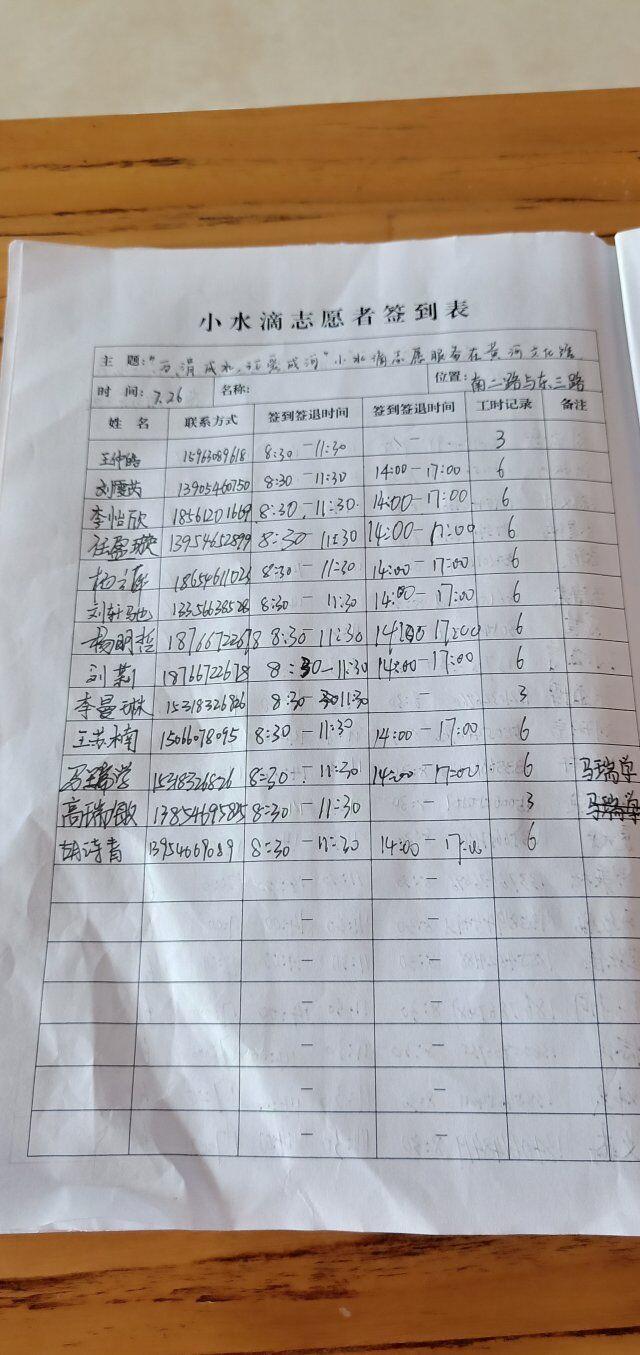 小水滴志愿者签到表
主 题:"万涓成水,汇爱成河"小水滴志愿服务在黄河文化馆
时 间: 7.26 名称: 位置: 南二路与东三路
姓 名 联系方式 签到签退时间 签到签退时间 工时记录 备注
8:30-11:30 - 3
13905460750 8:30-11:30 14:00-17:00 6
李怡欣 18561201669 8:30-11:30 14:00-17:00 6
任盈璇 13954652899 8:30-11:30 14:00-17:00 6
18654611023 8:30-11:30 14:00-17:00 6
8:30-11:30 14:00-17:00 6
杨明哲 18766722678 8:30-11:30 14:00-17:00 6
刘莉 18766722678 8:30-11:30 14:00-17:00 6
李曼琳 15318326826 8:30-11:30 - 3
王梦楠 15066078095 8:30-11:30 14:00-17:00 6
马瑞学 15318326826 8:30-11:30 14:00-17:00 6 马瑞学
高瑞敏 13854695825 8:30-11:30 - 3
胡诗青 13954669089 8:30-11:30 14:00-17:00 6
- -
- -
- -
- -
- -
- -
- -